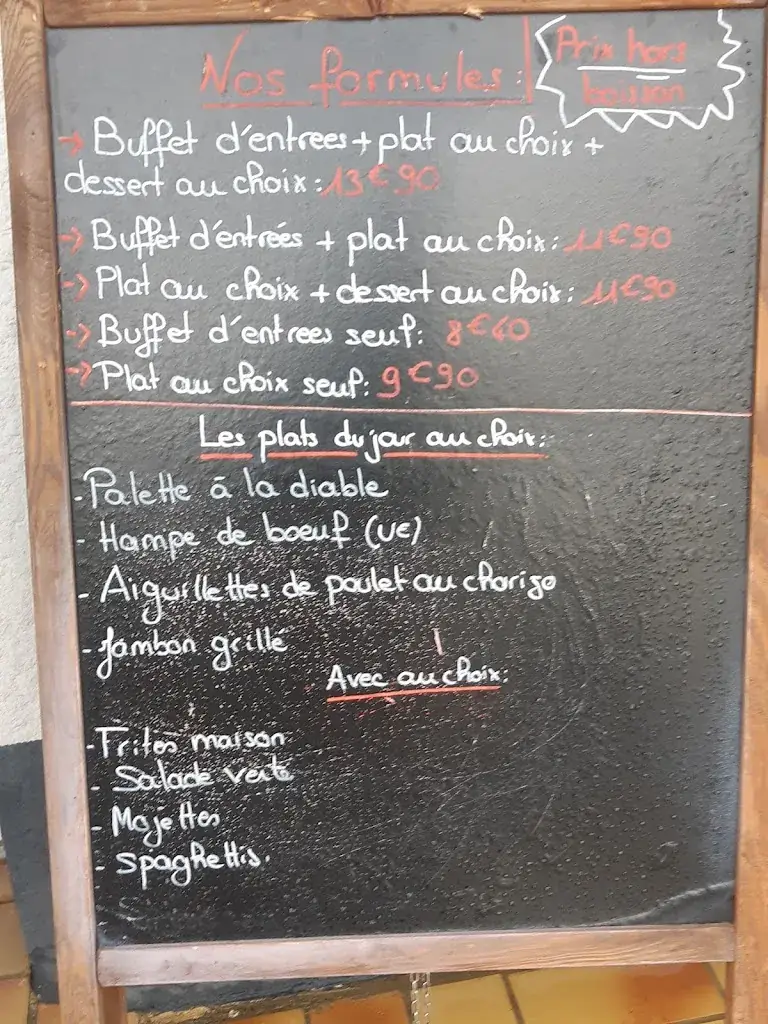 Nos formules:
Prix hors
boisson
→ Buffet d'entrees + plat au choix +
dessert au choix: 13€90
→ Buffet d'éntrées + plat au choix: 11€90
→ Plat au choix + dessert au choix: 11€90
→ Buffet d'entrees seul: 8€40
→ Plat au choix seul: 9€90
Les plats du jour au choix:
- Palette à la diable
- Hampe de boeuf (UE)
- Aiguillettes de poulet au chorizo
- Jambon grillé
Avec au choix:
- Frites maison
- Salade verte
- Mojettes
- Spaghettis.